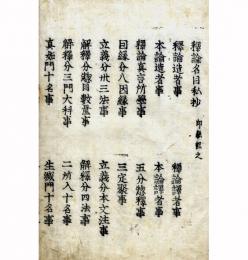 釋論名目私抄
釋論造者事
釋論譯者事
本論造者事
本論譯者事
釋論真言所學事
五分揔釋事
因緣分八因緣事
三定聚事
立義分卅三法事
立義分本文法事
解釋分揔目數量事
解釋分四法事
解釋分三門大科事
二所入十名事
真如門十名事
生滅門十名事